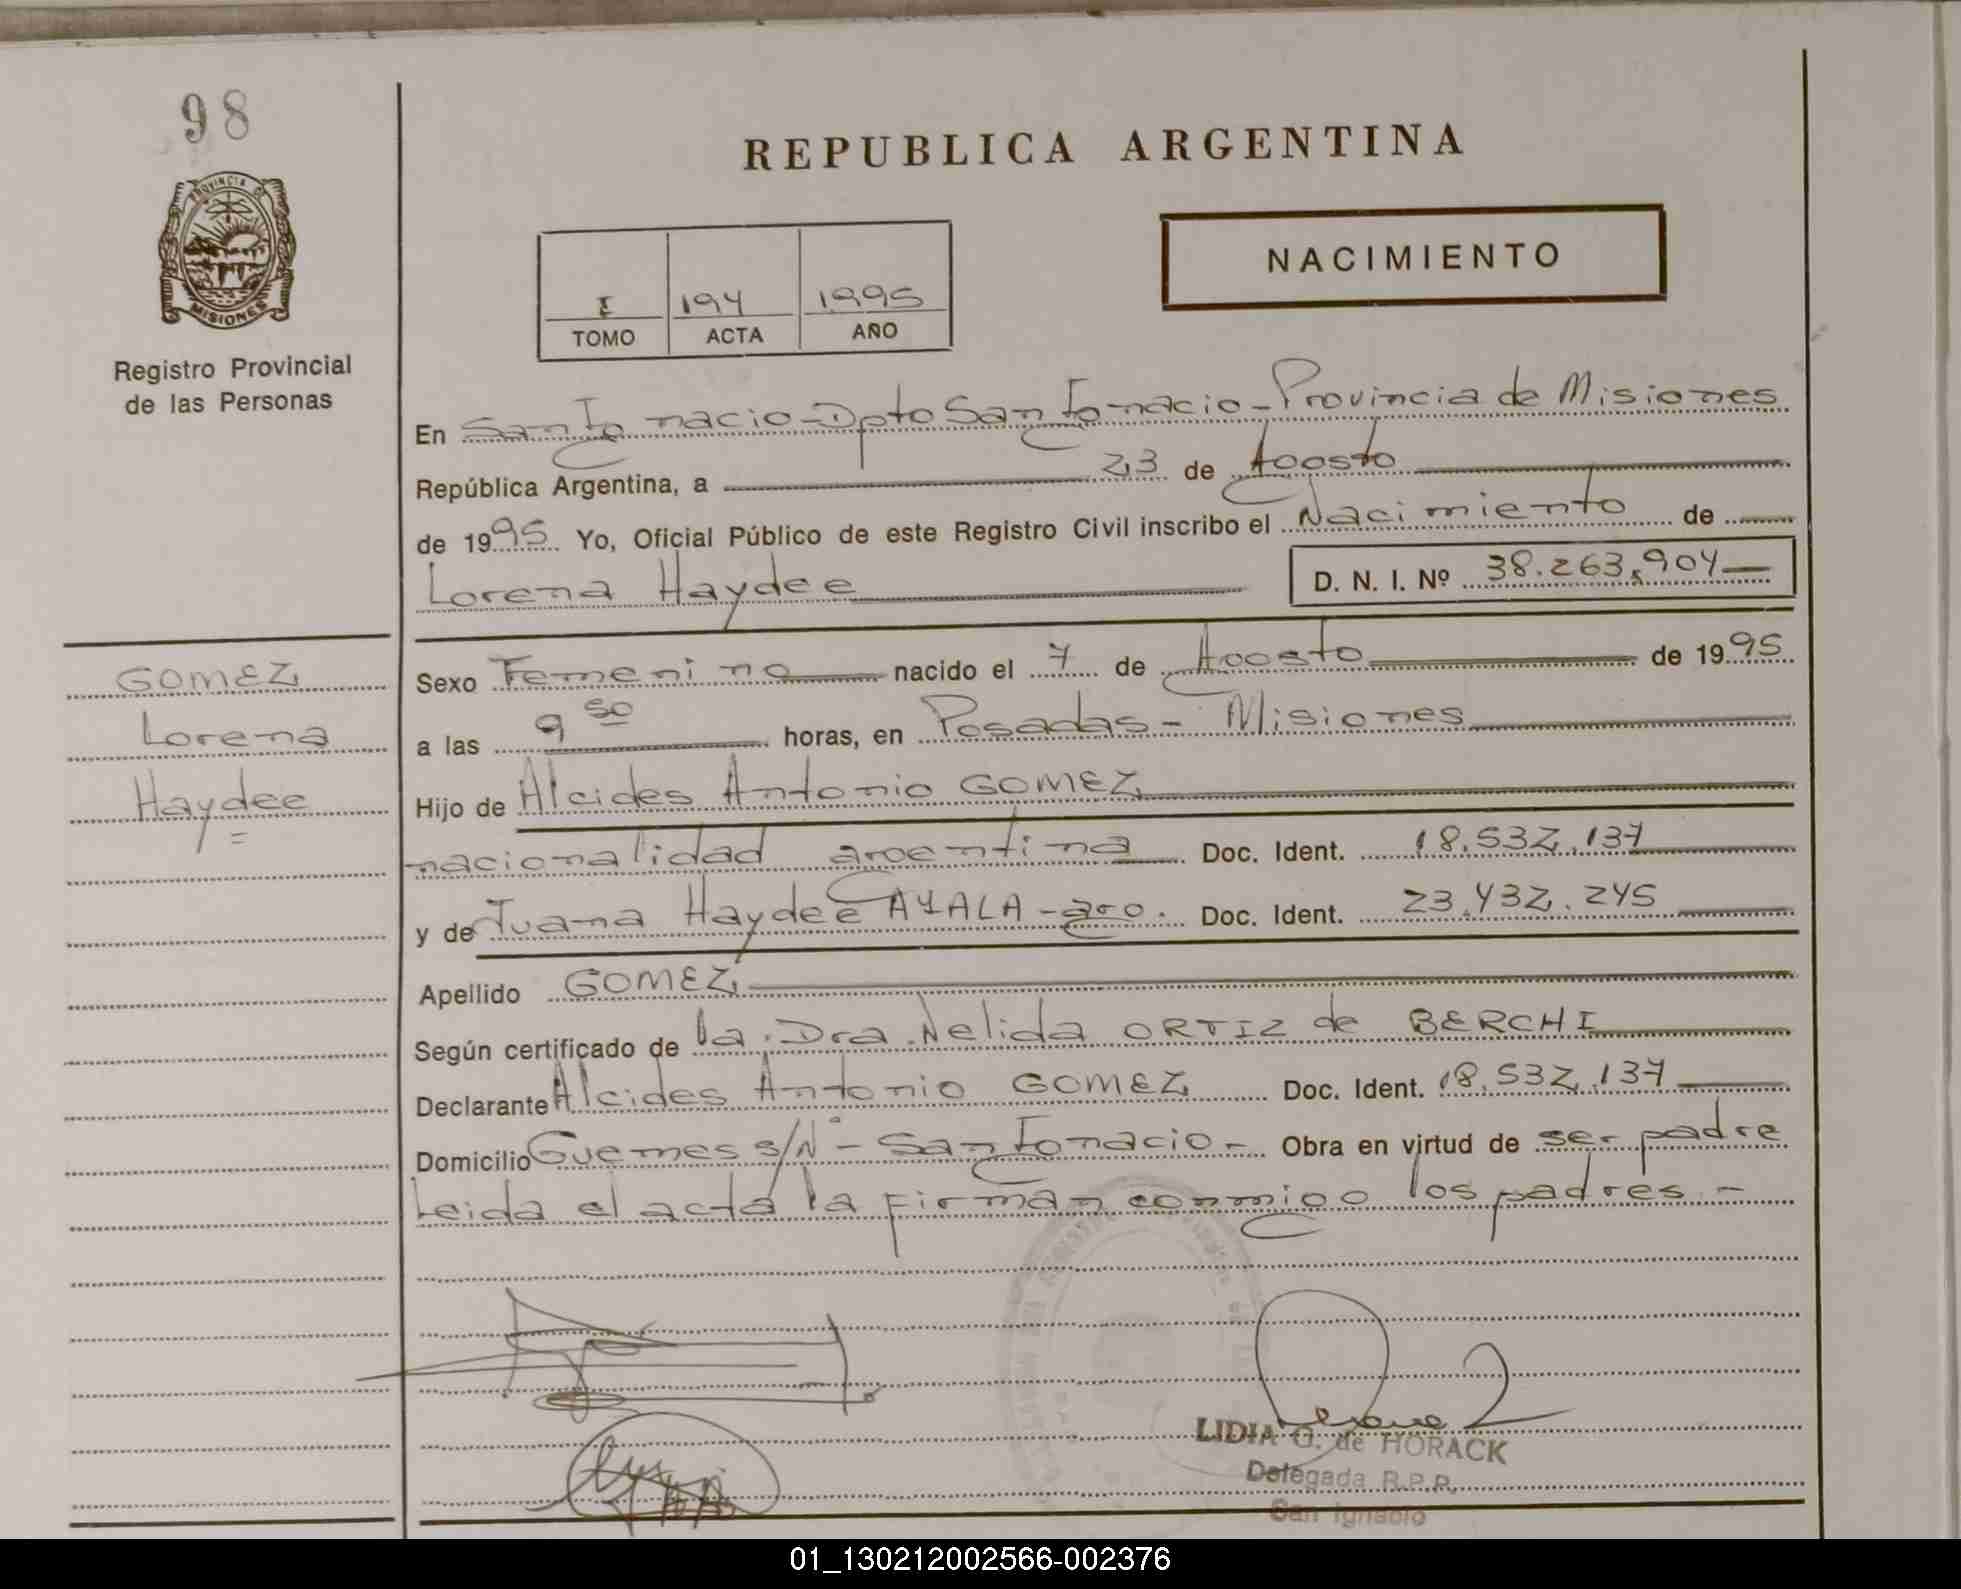 98
REPUBLICA ARGENTINA
NACIMIENTO
I 194 1995
TOMO ACTA AÑO
PROVINCIA DE
MISIONES
Registro Provincial
de las Personas
En San Ignacio - Dpto San Ignacio - Provincia de Misiones
República Argentina, a 23 de Agosto
de 1995 Yo, Oficial Público de este Registro Civil inscribo el Nacimiento de
Lorena Haydee D. N. I. Nº 38.263.904
GOMEZ
Lorena
Haydee
Sexo Femenino nacido el 7 de Agosto de 1995
a las 9 50 horas, en Posadas - Misiones
Hijo de Alcides Antonio GOMEZ
nacionalidad argentina Doc. Ident. 18.532.137
y de Juana Haydee AYALA - arg. Doc. Ident. 23.432.245
Apellido GOMEZ
Según certificado de la Dra. Nelida ORTIZ de BERCHI
Declarante Alcides Antonio GOMEZ Doc. Ident. 18.532.137
Domicilio Guemes s/Nº - San Ignacio - Obra en virtud de ser padre
Leida el acta la firman conmigo los padres. -
LIDIA G. de HORACK
Delegada R.P.P.
San Ignacio
01_130212002566-002376